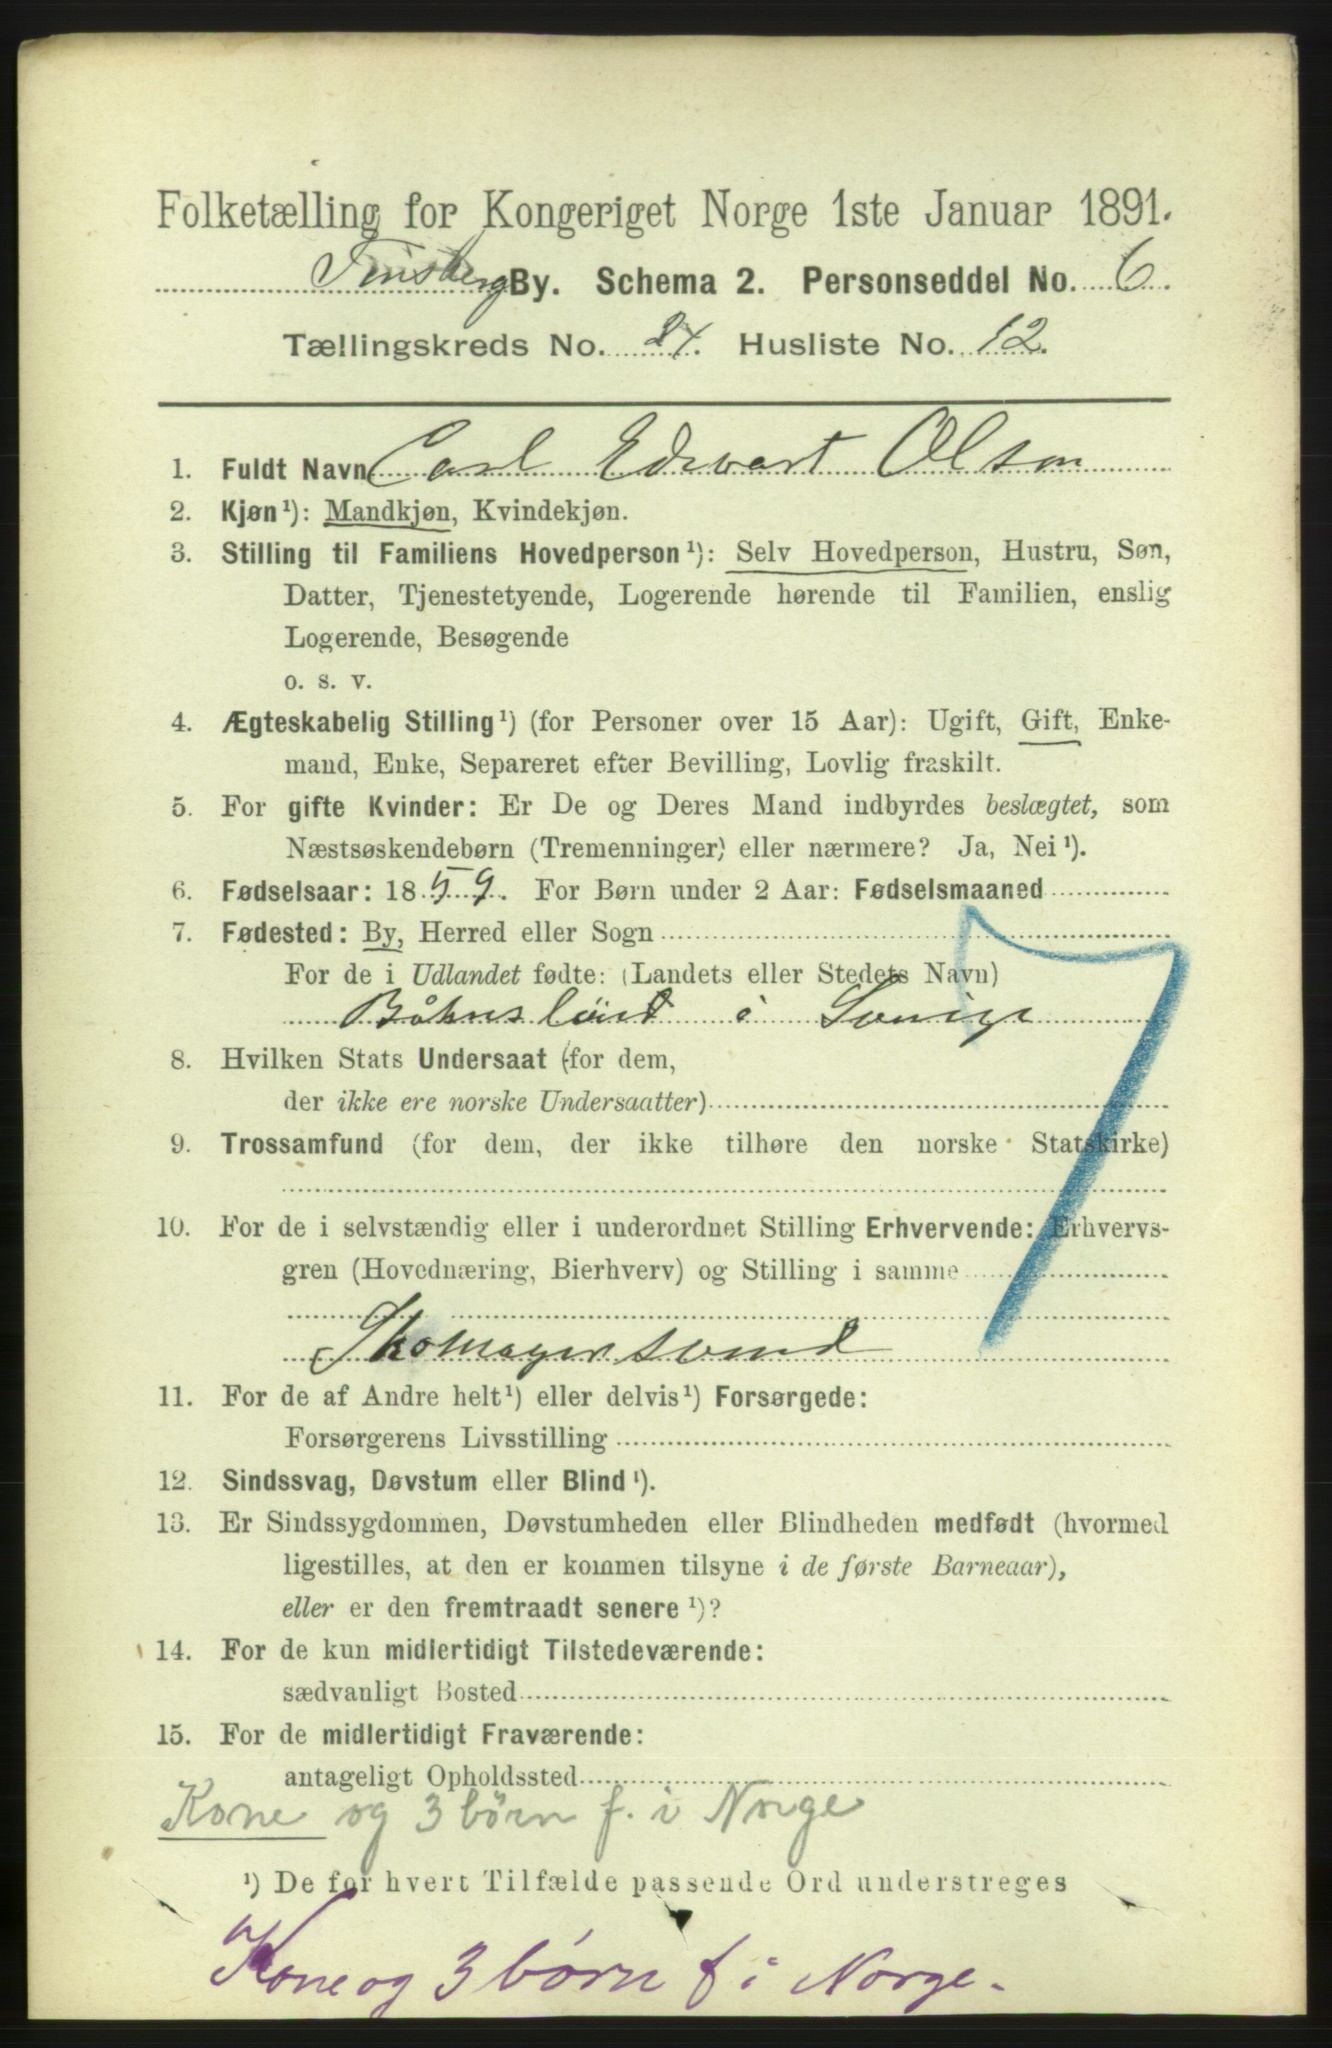 Folketælling for Kongeriget Norge 1ste Januar 1891.
Tønsberg By. Schema 2. Personseddel No. 6.
Tællingskreds No. 24. Husliste No. 12.
1. Fuldt Navn Carl Edevart Olson
2. Kjøn¹): Mandkjøn, Kvindekjøn.
3. Stilling til Familiens Hovedperson¹): Selv Hovedperson, Hustru, Søn,
Datter, Tjenestetyende, Logerende hørende til Familien, enslig
Logerende, Besøgende
o. s. v.
4. Ægteskabelig Stilling¹) (for Personer over 15 Aar): Ugift, Gift, Enke-
mand, Enke, Separeret efter Bevilling, Lovlig fraskilt.
5. For gifte Kvinder: Er De og Deres Mand indbyrdes beslægtet, som
Næstsøskendebørn (Tremenninger) eller nærmere? Ja, Nei¹).
6. Fødselsaar: 1859. For Børn under 2 Aar: Fødselsmaaned
7. Fødested: By, Herred eller Sogn
For de i Udlandet fødte: (Landets eller Stedets Navn)
Båhuslän i Sverige
8. Hvilken Stats Undersaat (for dem,
der ikke ere norske Undersaatter)
9. Trossamfund (for dem, der ikke tilhøre den norske Statskirke)
10. For de i selvstændig eller i underordnet Stilling Erhvervende: Erhvervs-
gren (Hovednæring, Bierhverv) og Stilling i samme
Skomagersvend
11. For de af Andre helt¹) eller delvis¹) Forsørgede:
Forsørgerens Livsstilling
12. Sindssvag, Døvstum eller Blind¹).
13. Er Sindssygdommen, Døvstumheden eller Blindheden medfødt (hvormed
ligestilles, at den er kommen tilsyne i de første Barneaar),
eller er den fremtraadt senere¹)?
14. For de kun midlertidigt Tilstedeværende:
sædvanligt Bosted
15. For de midlertidigt Fraværende:
antageligt Opholdssted
Kone og 3 børn f. i Norge
¹) De for hvert Tilfælde passende Ord understreges
Kone og 3 børn f i Norge.
7